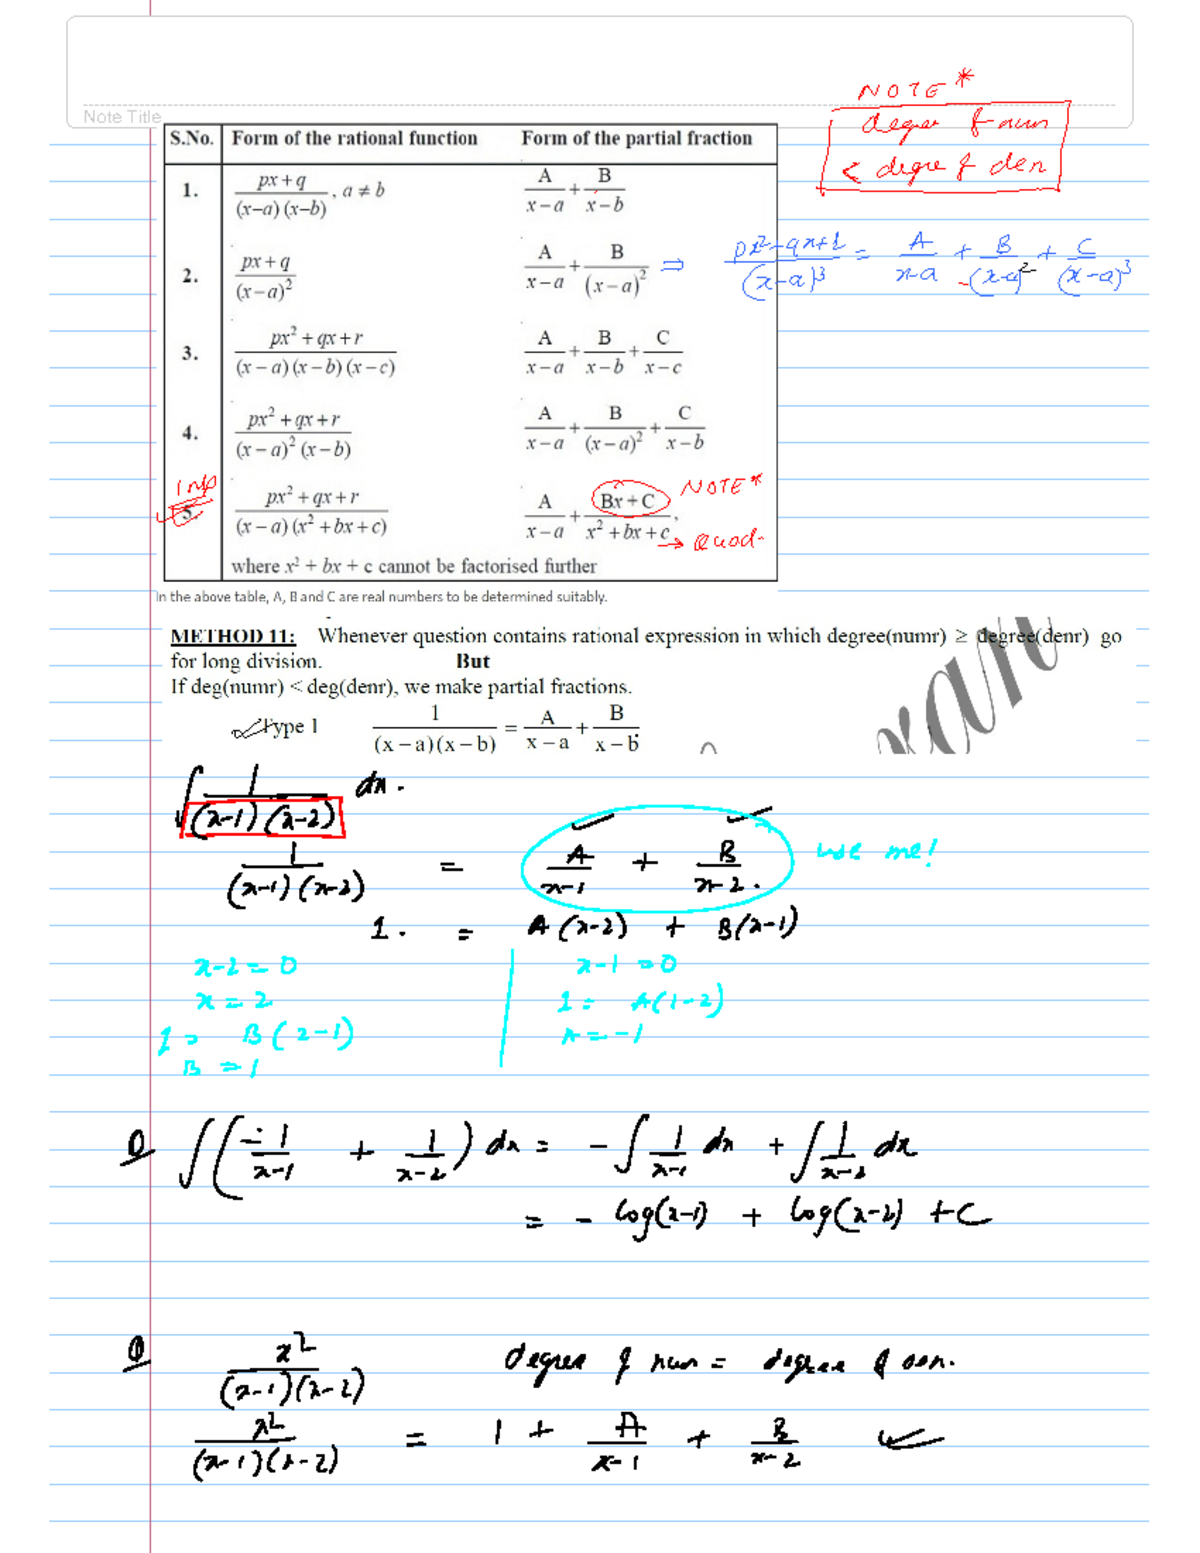 NOTE*
degree of num
< degree of den
Note Title
S.No. Form of the rational function Form of the partial fraction
1. px + q / (x–a) (x–b) , a ≠ b A / x – a + B / x – b
2. px + q / (x – a)² A / x – a + B / (x – a)² ⇒ px²+qx+1 / (x-a)³ = A / x-a + B / (x-a)² + C / (x-a)³
3. px² + qx + r / (x – a) (x – b) (x – c) A / x – a + B / x – b + C / x – c
4. px² + qx + r / (x – a)² (x – b) A / x – a + B / (x – a)² + C / x – b
Imp
5. px² + qx + r / (x – a) (x² + bx + c) A / x – a + Bx + C / x² + bx + c , NOTE*
→ Quad-
where x² + bx + c cannot be factorised further
In the above table, A, B and C are real numbers to be determined suitably.
METHOD 11: Whenever question contains rational expression in which degree(numr) ≥ degree(denr) go
for long division. But
If deg(numr) < deg(denr), we make partial fractions.
Type 1 1 / (x – a)(x – b) = A / x – a + B / x – b
∫ 1 / (x-1)(x-2) dx.
1 / (x-1)(x-2) = A / x-1 + B / x-2. use me!
1. = A(x-2) + B(x-1)
x-2 = 0 x-1 = 0
x = 2 1 = A(1-2)
1 = B(2-1) A = -1
B = 1
Q ∫(-1 / x-1 + 1 / x-2) dx = - ∫ 1 / x-1 dx + ∫ 1 / x-2 dx
= - log(x-1) + log(x-2) + C
Q x² / (x-1)(x-2) degree of num = degree of den.
x² / (x-1)(x-2) = 1 + A / x-1 + B / x-2